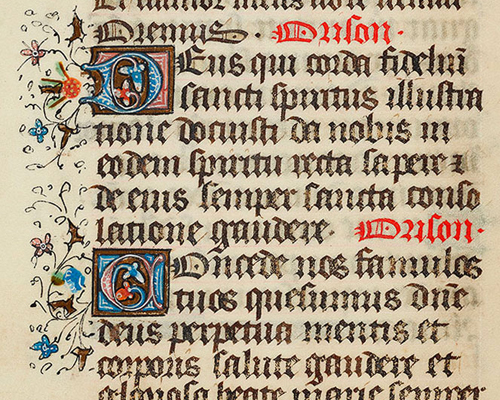 Et clamor meus
Oremus. Orison.
Deus qui corda fideliū
sancti spiritus illustra
tione docuisti da nobis in
eodem spiritu recta sapere ⁊
de eius semper sancta conso
latione gaudere. Orison.
Concede nos famulos
tuos quesumus dn̄e
deus perpetua mentis et
corporis salute gaudere et
gloriosa beate marie semper